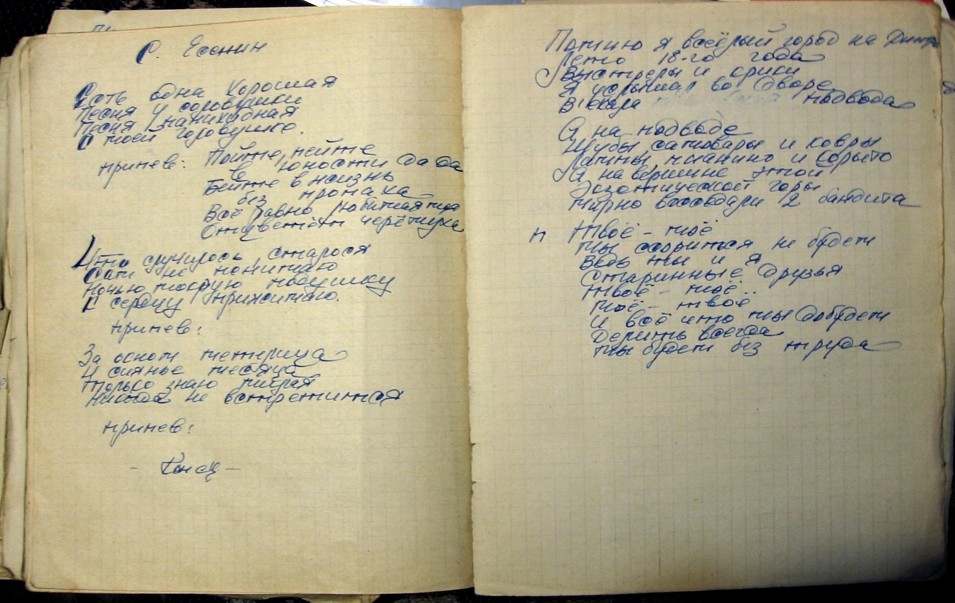 С. Есенин
Есть одна хорошая
Песня у соловушки
Песня панихидная
О моей головушке.
припев: Пойте, пейте
в юности да да
Бейте в жизнь
без промаха
Всё равно любимая
Отцветёт черёмуха
Что случилось сталося
Сам не понимаю
Ночью мокрую подушку
К сердцу прижимаю.
припев:
За окном метелица
И сиянье месяца
Только знаю милая
Никогда не встретимся
припев:
- Конец -
Помню я весёлый город на Днепре
Лето 18-го года
Выстрелы и крики
Я услышал во дворе
Въехала подвода
А на подводе
Шубы самовары и ковры
Лампы, пианино и корыто
А на вершине этой
Экзотической горы
Мирно восседали 2 бандита
п Твоё - моё
Мы ссориться не будем
Ведь ты и я
Старинные друзья
Твоё - моё..
Моё - твоё
И всё что мы добудем
Делить всегда
Мы будем без труда